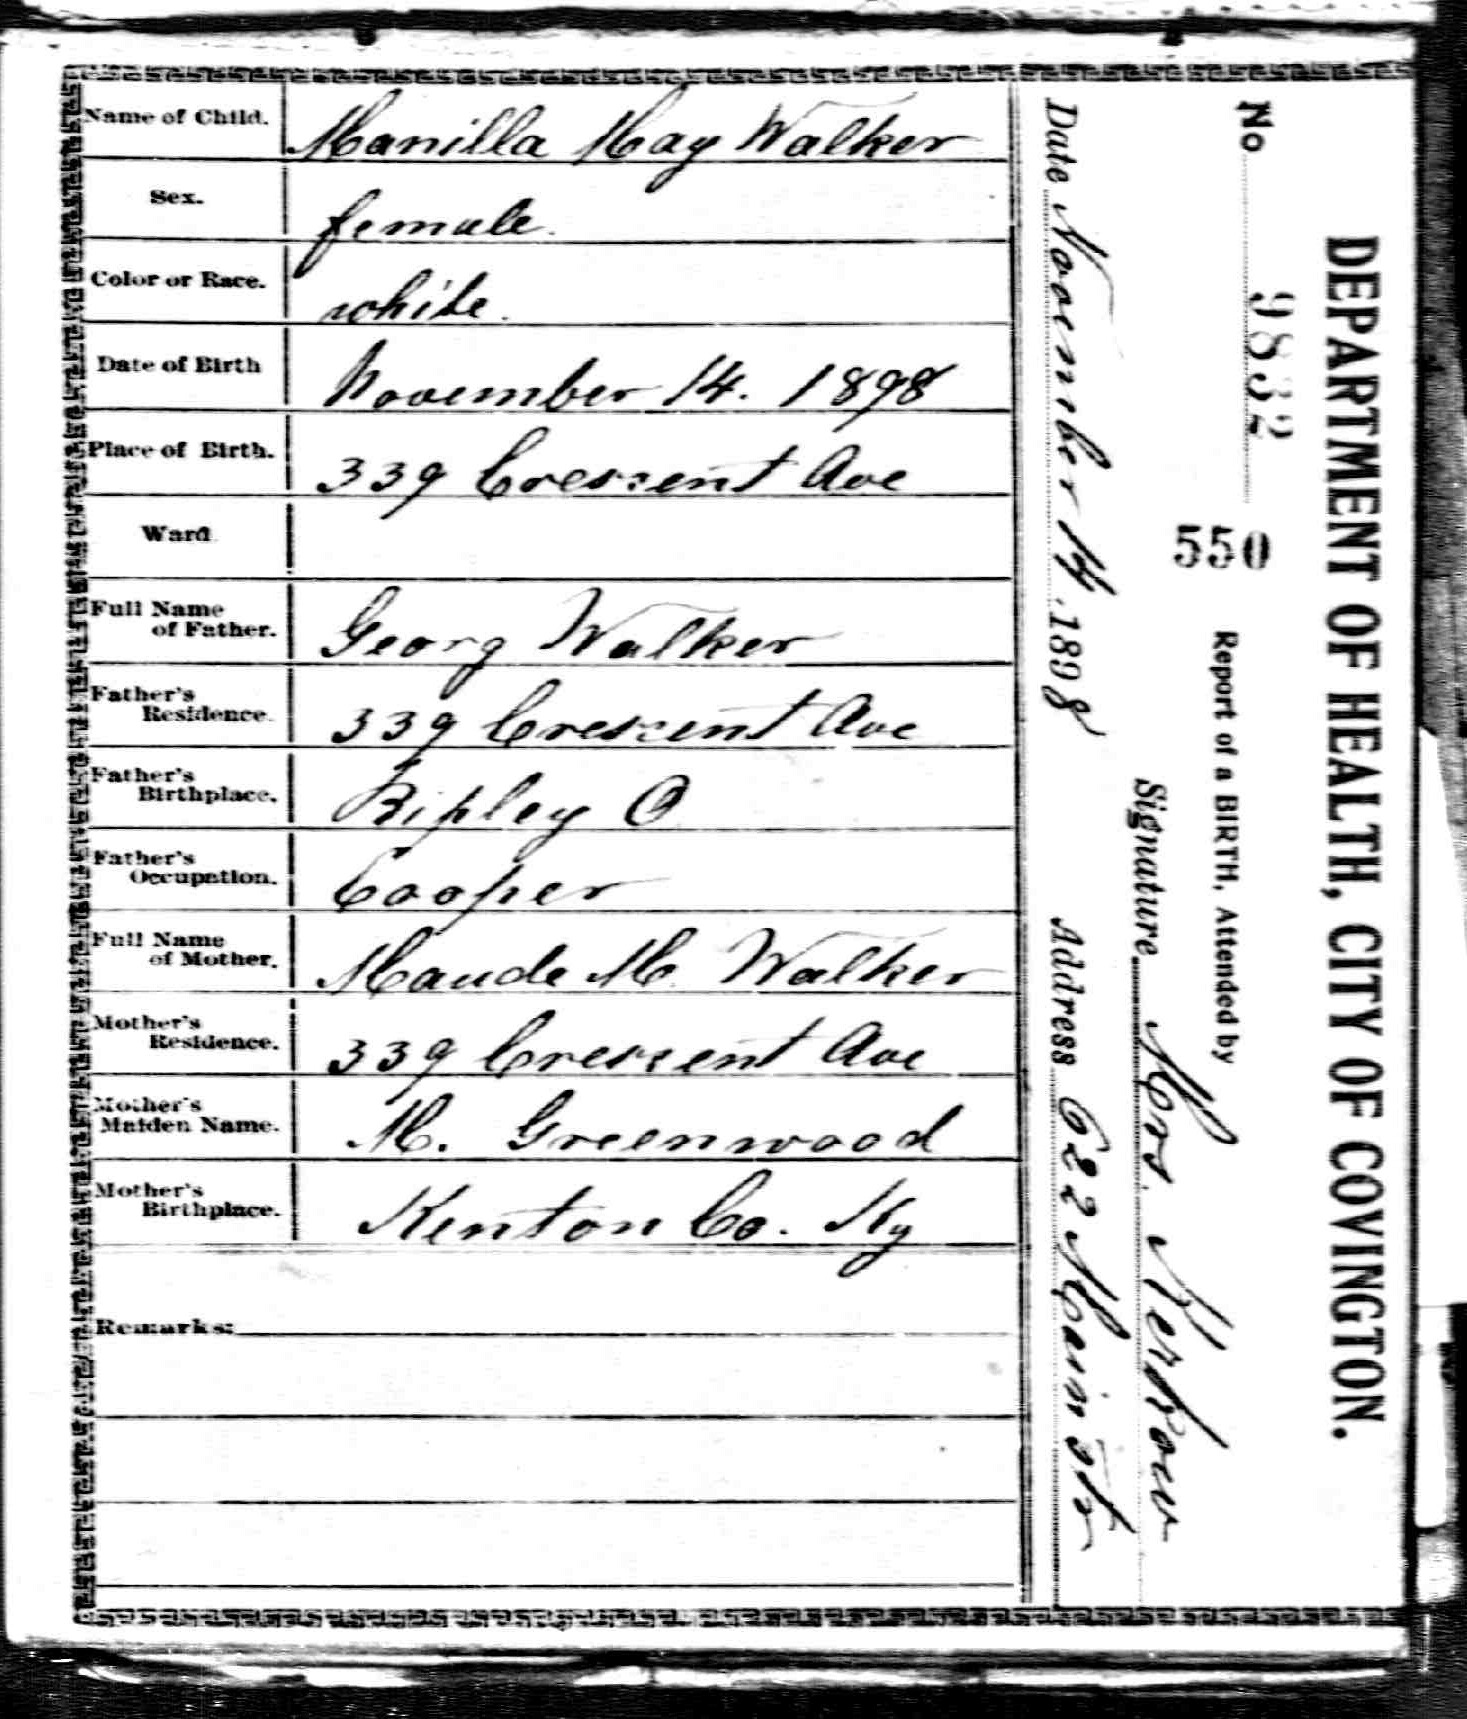 Name of Child. Manilla May Walker
Sex. female.
Color or Race. white.
Date of Birth November 14. 1898
Place of Birth. 339 Crescent Ave
Ward
Full Name of Father. Georg Walker
Father's Residence. 339 Crescent Ave
Father's Birthplace. Ripley O
Father's Occupation. Cooper
Full Name of Mother. Maude M. Walker
Mother's Residence. 339 Crescent Ave
Mother's Maiden Name. M. Greenwood
Mother's Birthplace. Kenton Co. Ky
Remarks:
DEPARTMENT OF HEALTH, CITY OF COVINGTON.
No 9832
550
Report of a BIRTH, Attended by
Signature Mrs.
Date November 14. 1898 Address 622 Main str